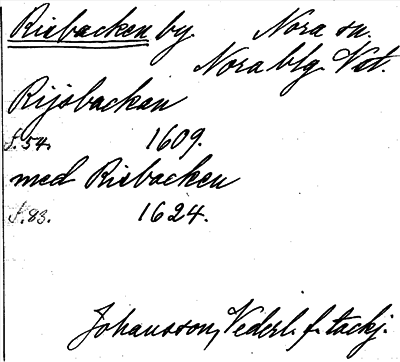 Risbacken by. Nora sn.
Nora blg. Vst.
Rijsbackan
f. 54. 1609.
med Risbacken
f. 83. 1624.
Johansson, Vederl. f. tackj.